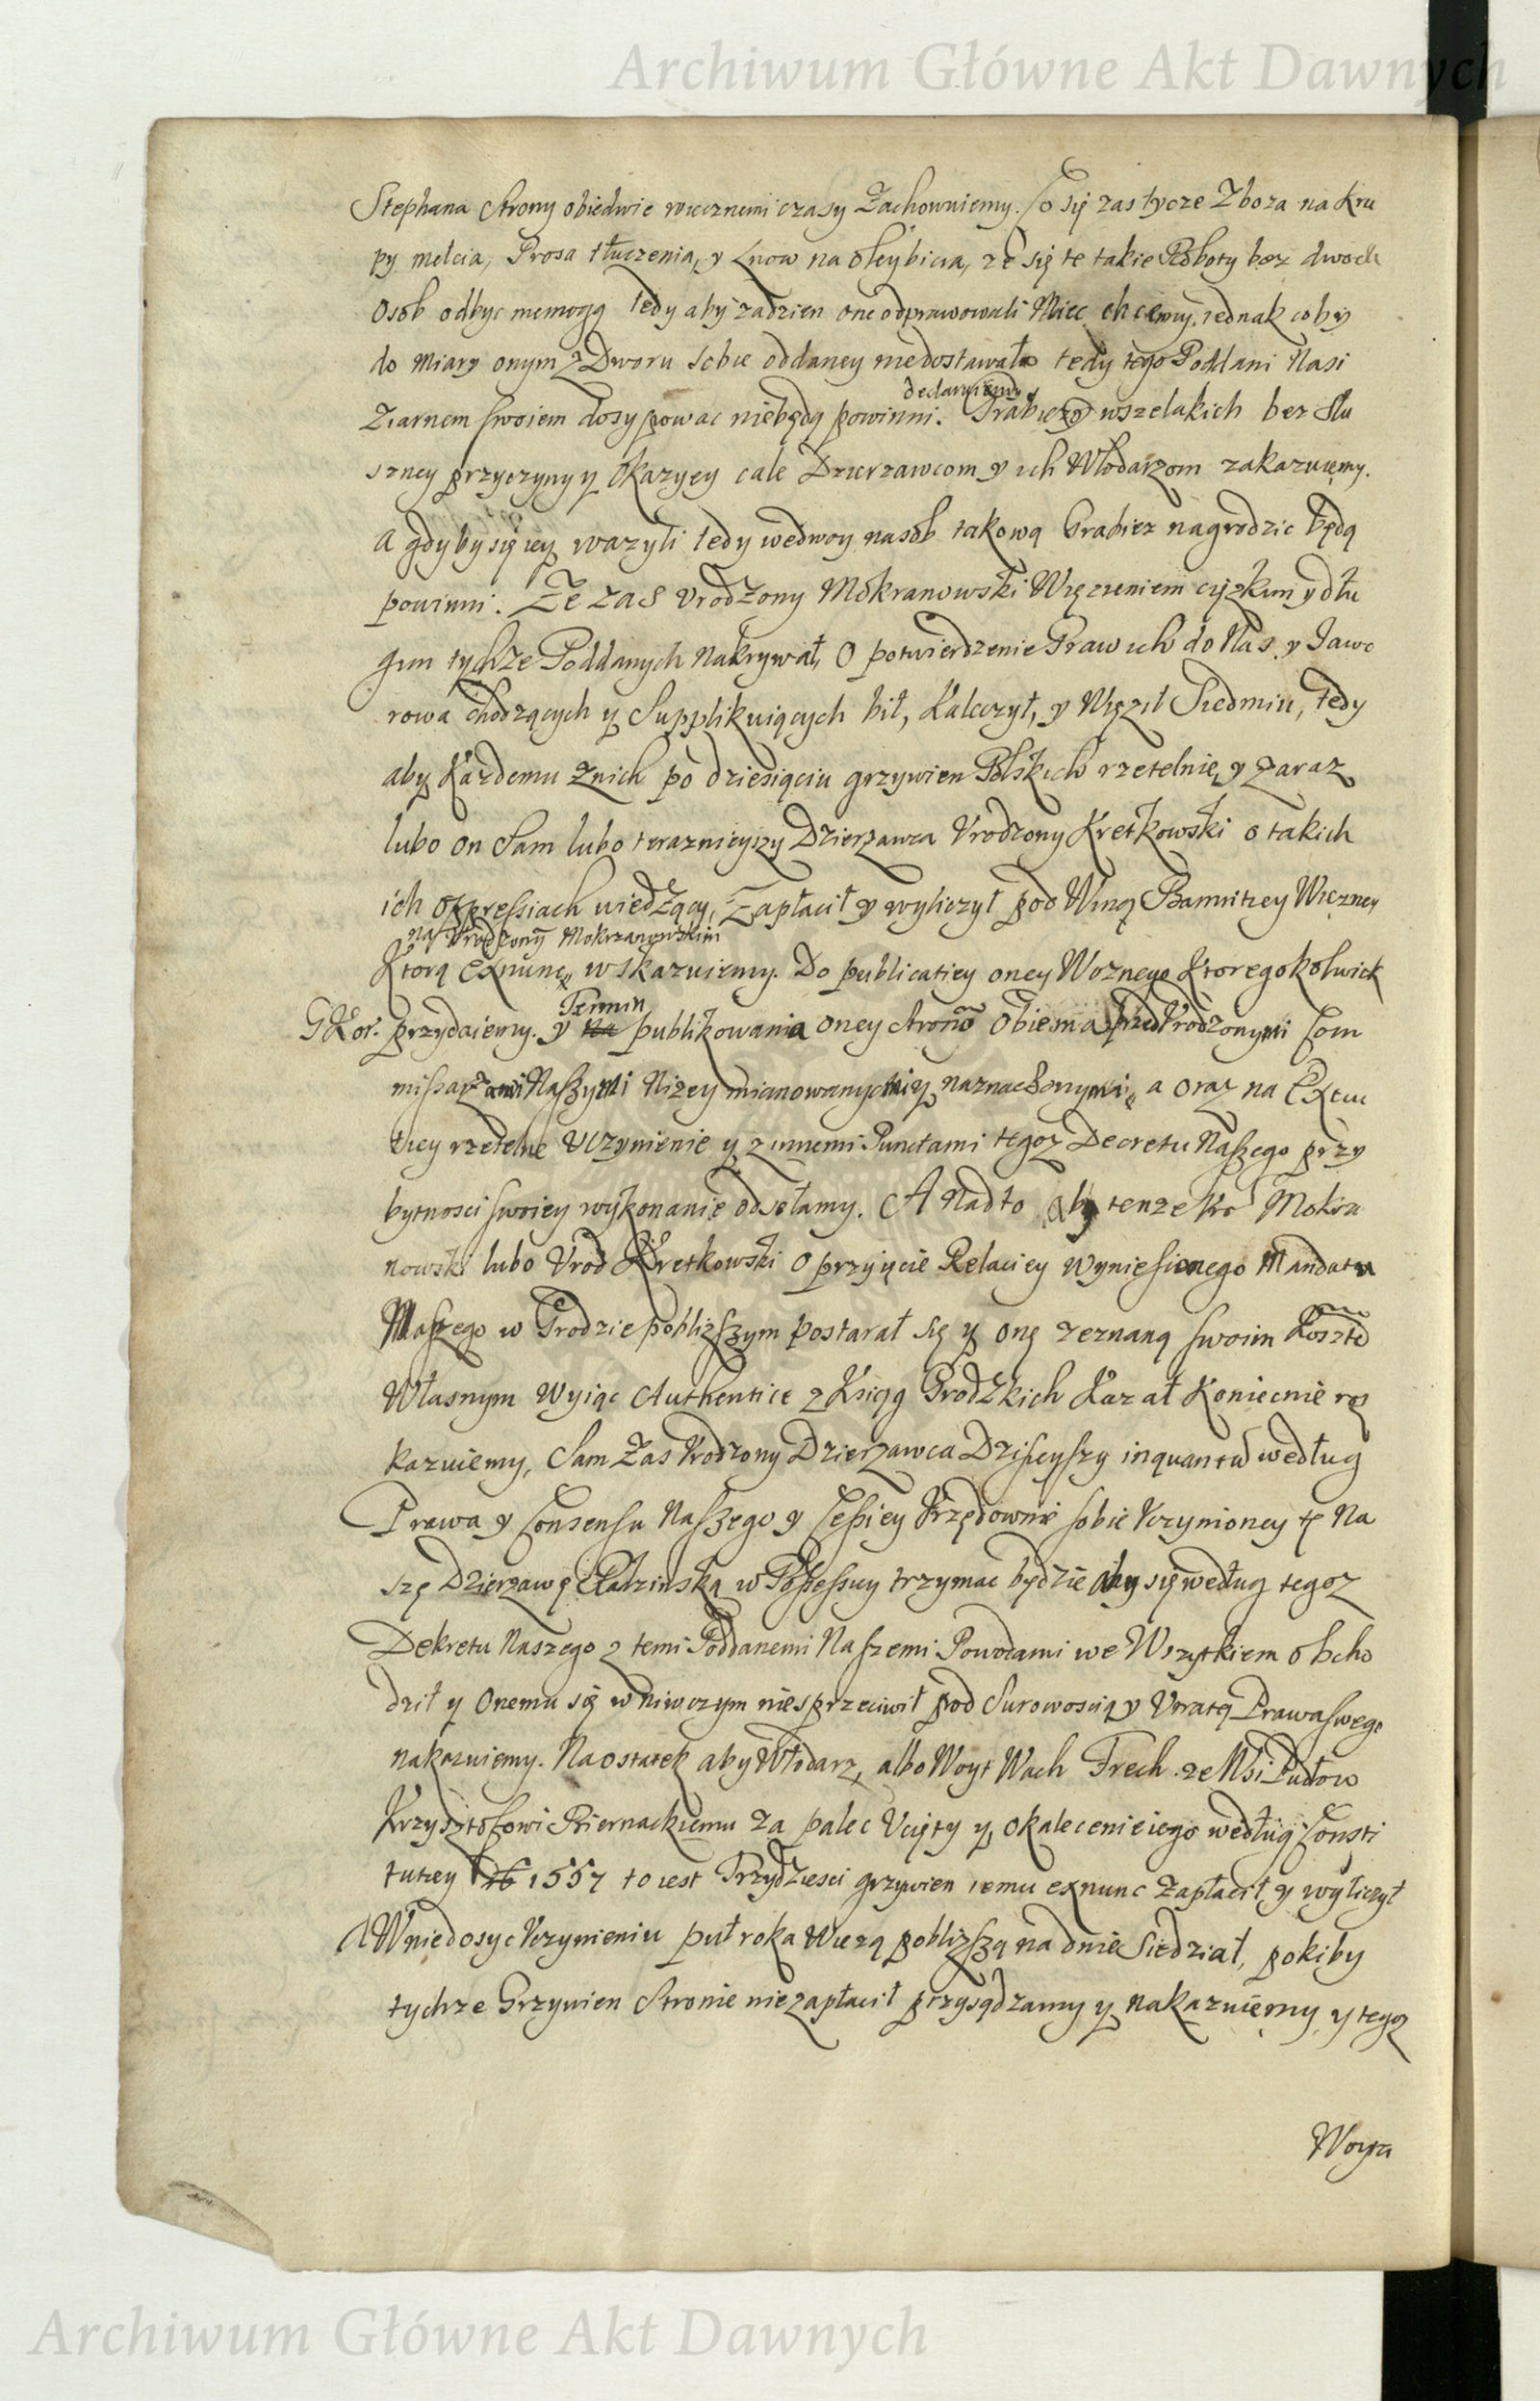 Archiwum Główne Akt Dawnych
Stephana Strony obiedwie wiecznemi czasy Zachowuiemy. Co się zas tycze Zboza na kru
py melcia, Prosa tłuczenia, y Lnow na oley bicia, ze się te takie Roboty bez dwoch
Osob odbyc niemogą tedy aby zadzien one odprawowali Miec chcemy. iednak coby
do Miary onym z Dworu sobie oddaney niedostawało tedy tego Poddani Nasi
Ziarnem swoiem dosypowac niebędą powinni.
declaruiemy
Grabiezy wszelakich bez Słu
szney przyczyny y Okazyey cale Dzierzawcom y ich Włodarzom zakazuiemy.
A gdyby się iey wazyli tedy wedwoy nasob takową Grabiez nagrodzic będą
powinni. Ze zas Vrodzony Mokranowski Więzieniem cięzkim y dłu
gim tychze Poddanych Nakrywał, O potwierdzenie Praw ich do Nas y Jawo
rowa chodzących y Supplikuiących bił, Kaleczył, y Więził Siedmiu, tedy
aby Kazdemu znich po dziesiąciu grzywien Polskich rzetelnie y zaraz
lubo on Sam lubo terazniejszy Dzierzawca Vrodzony Kretkowski o takich
ich oppressiach wiedzący, Zapłacił y wyliczył pod Winą Bannitiey Wieczney
na Vrodzonym Mokrzanowskim
Ktorą exnunc wskazuiemy. Do publicatiey oney Woznego Ktoregokolwiek
G Kor. przydaiemy. y
Termin
na publikowania oney Stronom Obiema przed Vrodzonymi Com
missarzami Naszymi Nizey mianowanymi y naznaczonymi, a oraz na Exeku
tiey rzetelne Vczynienie y z innemi Punctami tegoz Decretu Naszego przy
bytnosci swoiey wykonanie odsełamy. A Nadto aby tenze Mokra
nowski lubo Vrod Kretkowski o przyięcie Relaciey wyniesionego Mandatu
Naszego w Grodzie pobliszszym postarał się y onę zeznaną swoim Kosztem
Własnym wyiąc Authentice z Ksiąg Grodzkich Kazał Koniecnie roz
kazuiemy, Sam Zas Vrodzony Dzierzawca Dzisieyszy inquantum według
Prawa y Consensu Naszego y Cessiey Vrzędownie sobie Vczynioney tę Na
szę Dzierzawę w Possessiey trzymac będzie aby się według tegoz
Dekretu Naszego z temi Poddanemi Naszemi Powodami we Wszytkiem obcho
dził y Onemu się w niwczym niesprzeciwił pod Surowoscią y Vtratą Prawa swego
nakazuiemy. Naostatek aby Włodarz, albo Woyt Wach Frech ze Wsi Pudłow
Krzysztofowi Biernackiemu Za palec Vcięty y okaleczenie iego według Consti
tutiey 1557 to iest Trzydziesci grzywien iemu exnunc Zapłacił y wyliczył
A W niedosyc Vczynieniu puł roka Wiezą poblizszą na dnie Siedział, pokiby
tychze Grzywien Stronie niezapłacił przysądzamy y nakazuiemy, y tegoz
Woyta
Archiwum Główne Akt Dawnych